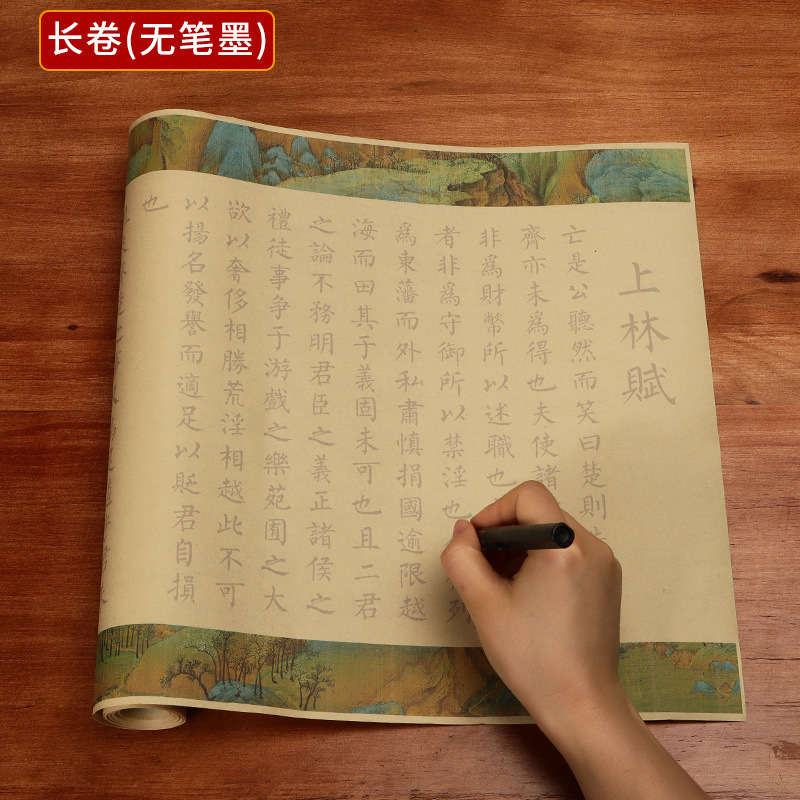 长卷(无笔墨)
上林賦
亡是公聽然而笑曰楚則
齊亦未爲得也夫使諸
非爲財幣所以述職也
者非爲守御所以禁淫也列
爲東藩而外私肅慎捐國逾限越
海而田其于義固未可也且二君
之論不務明君臣之義正諸侯之
禮徒事争于游戲之樂苑囿之大
欲以奢侈相勝荒淫相越此不可
以揚名發譽而適足以貶君自損
也